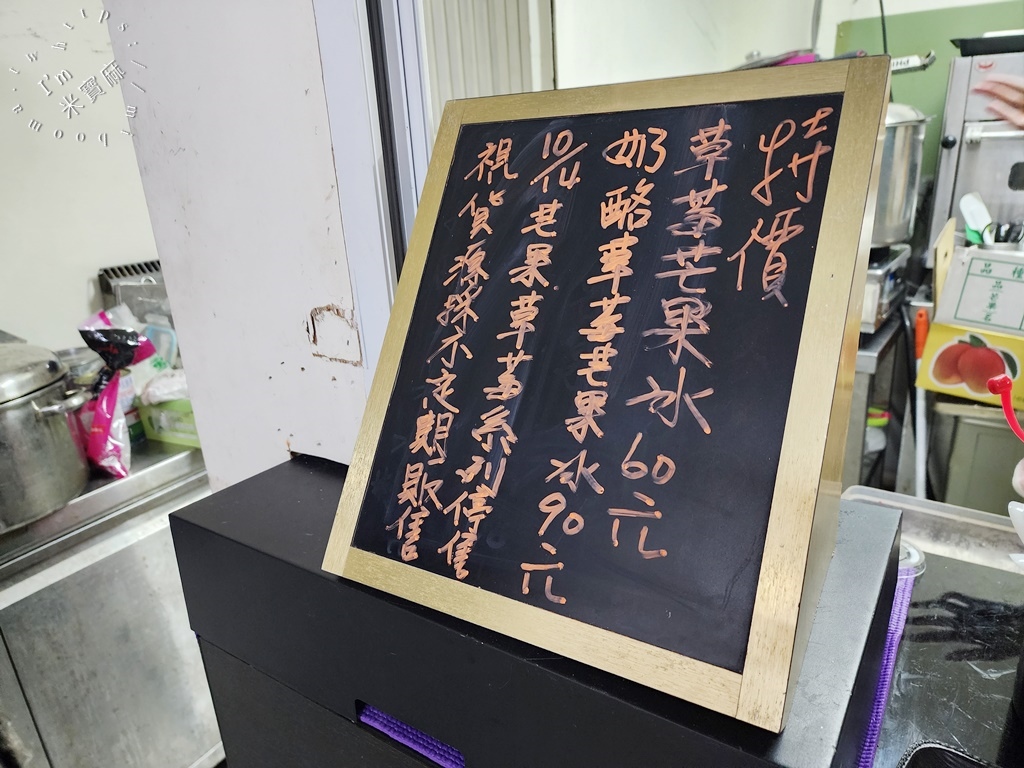 特價
草莓芒果冰60元
奶酪草莓芒果冰90元
10/14芒果草莓系列停售
視貨源採不定期販售
I'm
米寶麻
品種